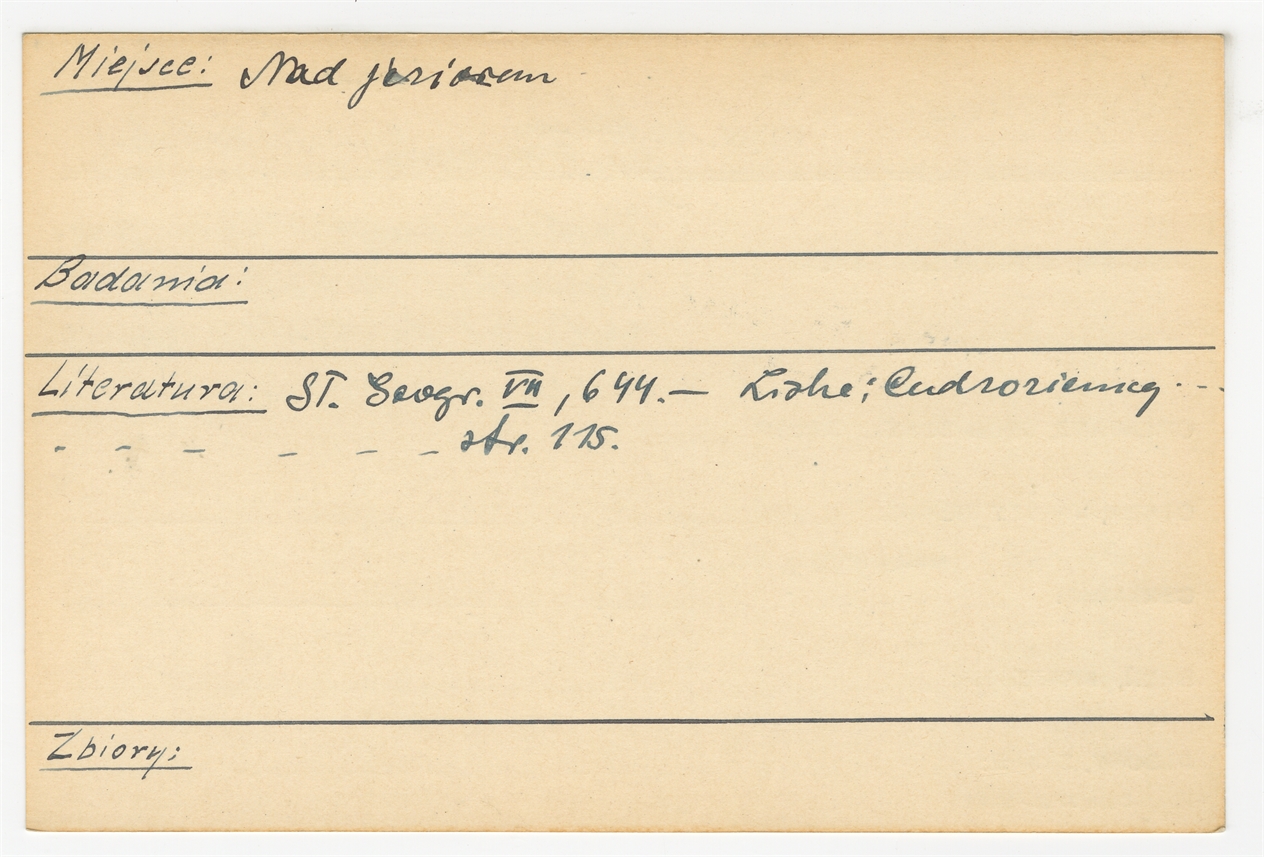 Miejsce: Nad jeziorem
Badania:
Literatura: Sł. Geogr. VII, 644. — Liske; Cudzoziemcy - - -
- - - - - - str. 115.
Zbiory: